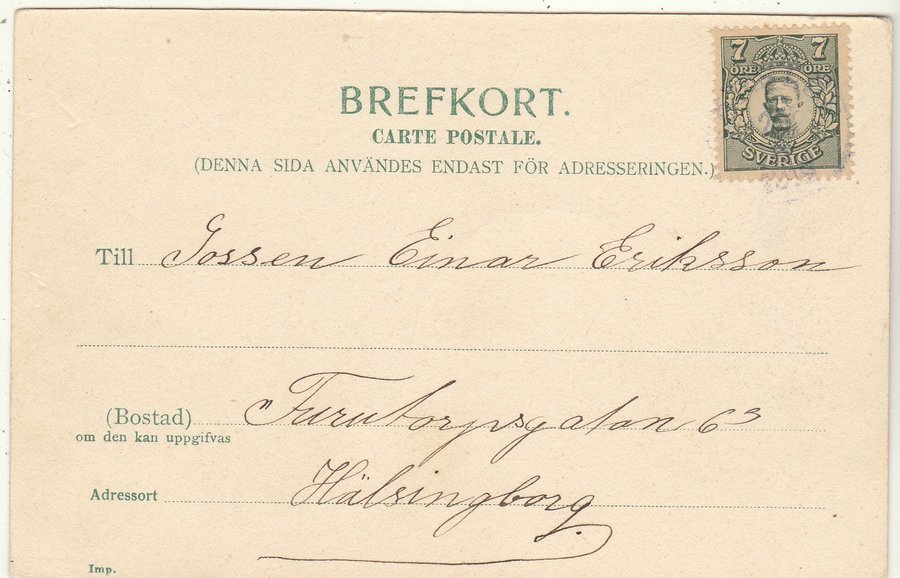 7 7
ÖRE ÖRE
SVERIGE
BREFKORT.
CARTE POSTALE.
(DENNA SIDA ANVÄNDES ENDAST FÖR ADRESSERINGEN.)
Till Gossen Einar Eriksson
(Bostad) Furutorpsgatan 63
om den kan uppgifvas
Adressort Hälsingborg
Imp.